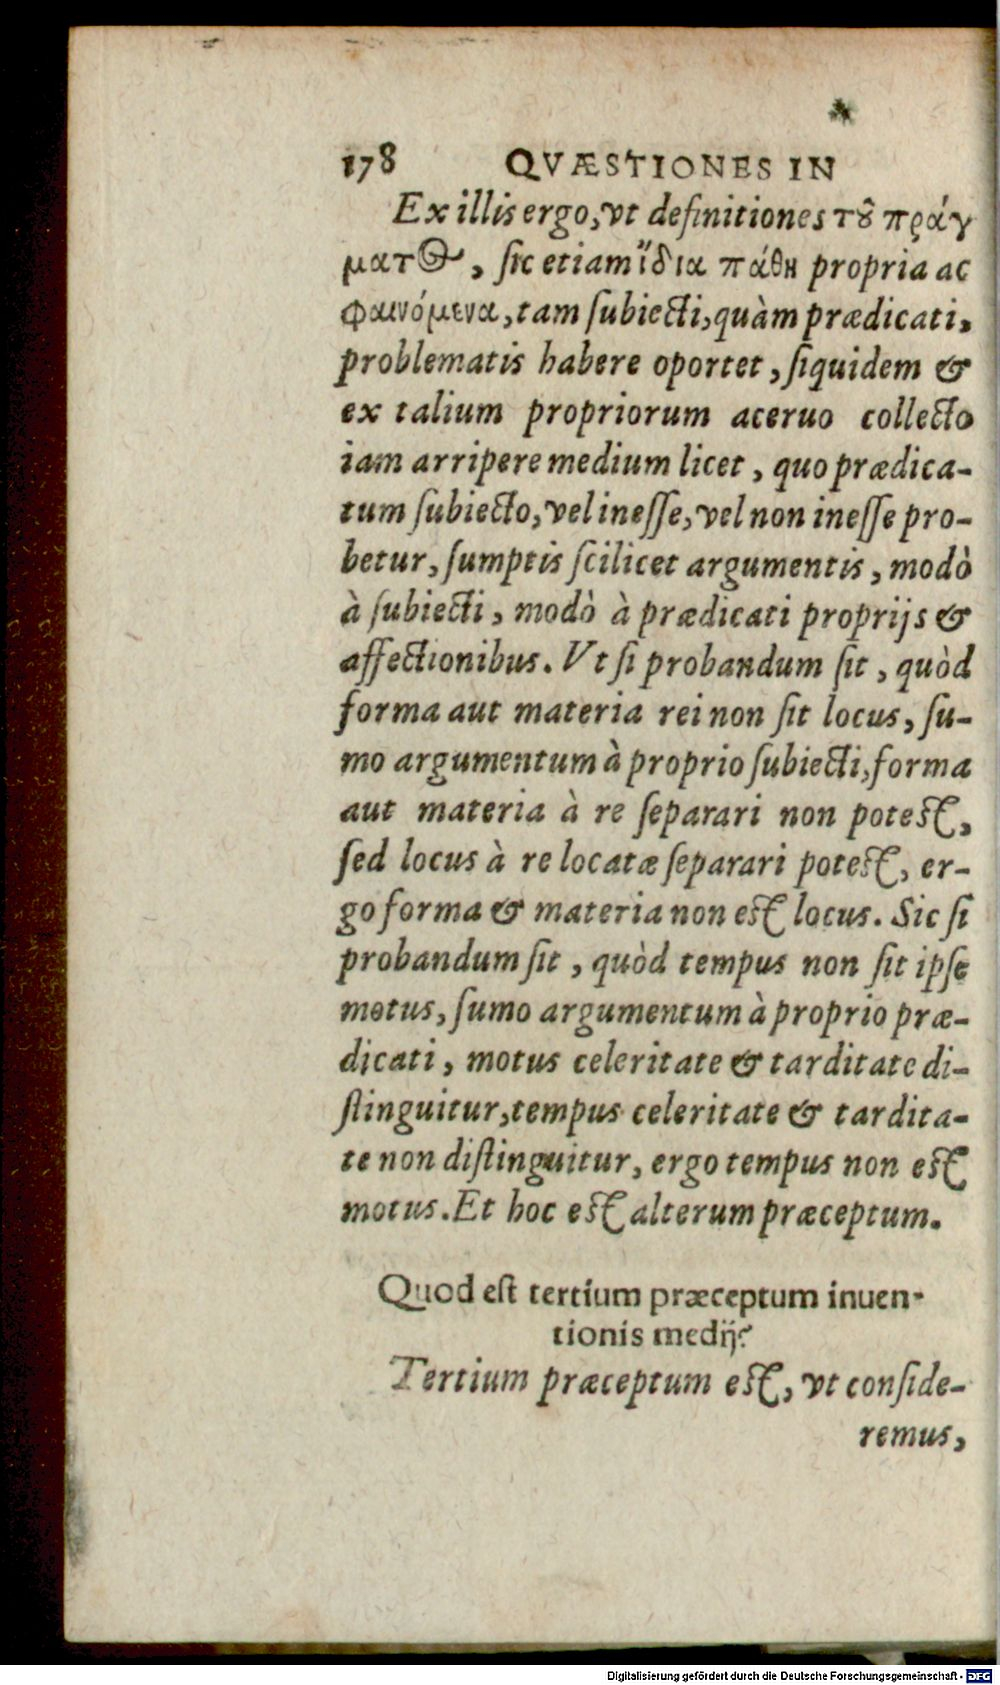 178 QVÆSTIONES IN
Ex illis ergo, vt definitiones τȣ͂ πράγ
ματ⊙, sic etiam ἴδια πάθη propria ac
φαινόμενα, tam ſubiecti, quàm prædicati,
problematis habere oportet, ſiquidem &
ex talium propriorum aceruo collecto
iam arripere medium licet, quo prædica-
tum ſubiecto, vel ineſſe, vel non ineſſe pro-
betur, ſumptis ſcilicet argumentis, modò
à ſubiecti, modò à prædicati proprijs &
affectionibus. Vt ſi probandum ſit, quòd
forma aut materia rei non ſit locus, ſu-
mo argumentum à proprio ſubiecti, forma
aut materia à re ſeparari non poteſt,
ſed locus à re locatæ ſeparari poteſt, er-
go forma & materia non eſt locus. Sic ſi
probandum ſit, quòd tempus non ſit ipſe
motus, ſumo argumentum à proprio præ-
dicati, motus celeritate & tarditate di-
ſtinguitur, tempus celeritate & tardita-
te non diſtinguitur, ergo tempus non eſt
motus. Et hoc eſt alterum præceptum.
Quod eſt tertium præceptum inuen-
tionis medij?
Tertium præceptum eſt, vt conſide-
remus,
Digitalisierung gefördert durch die Deutsche Forschungsgemeinschaft - DFG